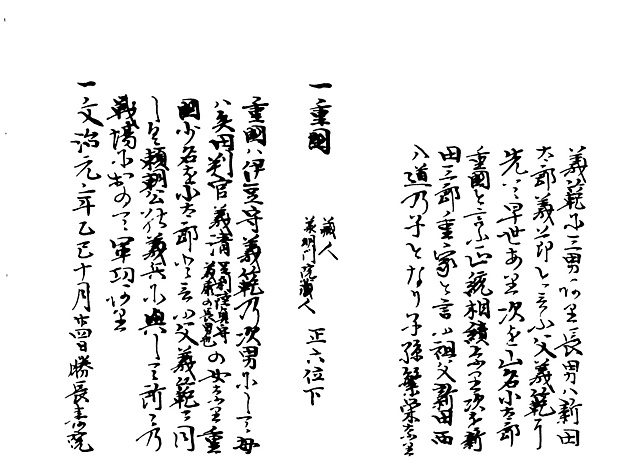 義範に三男あり長男ハ新田
太郎義節と言ふ父義範に
先て早世あり次を山名小太郎
重國と言ふ正統相續なり次を新
田三郎重家と言ふ祖父新田西
入道乃子となり子孫繁栄なり
一重國 蔵人 美明門院蔵人 正六位下
重國ハ伊豆守義範乃次男にして母
ハ矢田判官義清 足利陸奥守義康の長男也 の女なり重
國少名を小太郎と言ふ父義範と同
しく頼朝公の義兵に與して所々乃
戦場におゐて軍功あり
一文治元年乙巳十月廿四日勝長壽院